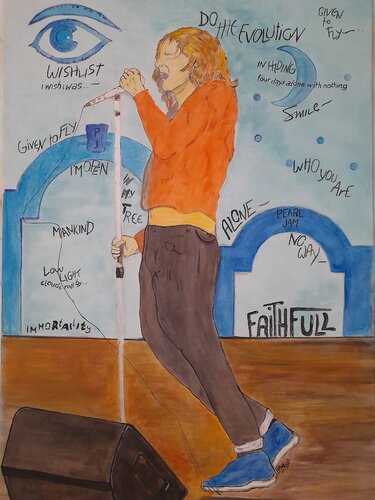 DO THE EVOLUTION
GIVEN
to
FLY
WISHLIST
i wish i was...
IN HIDING
four days alone with nothing
SMILE
GIVEN to FLY
P
J
I'M OPEN
IN
MY
TREE
WHO YOU
ARE
ALONE
PEARL
JAM
MANKIND
NO
WAY
LOW
LIGHT
clouds roll by...
IMMORTALITY
FAITHFULL